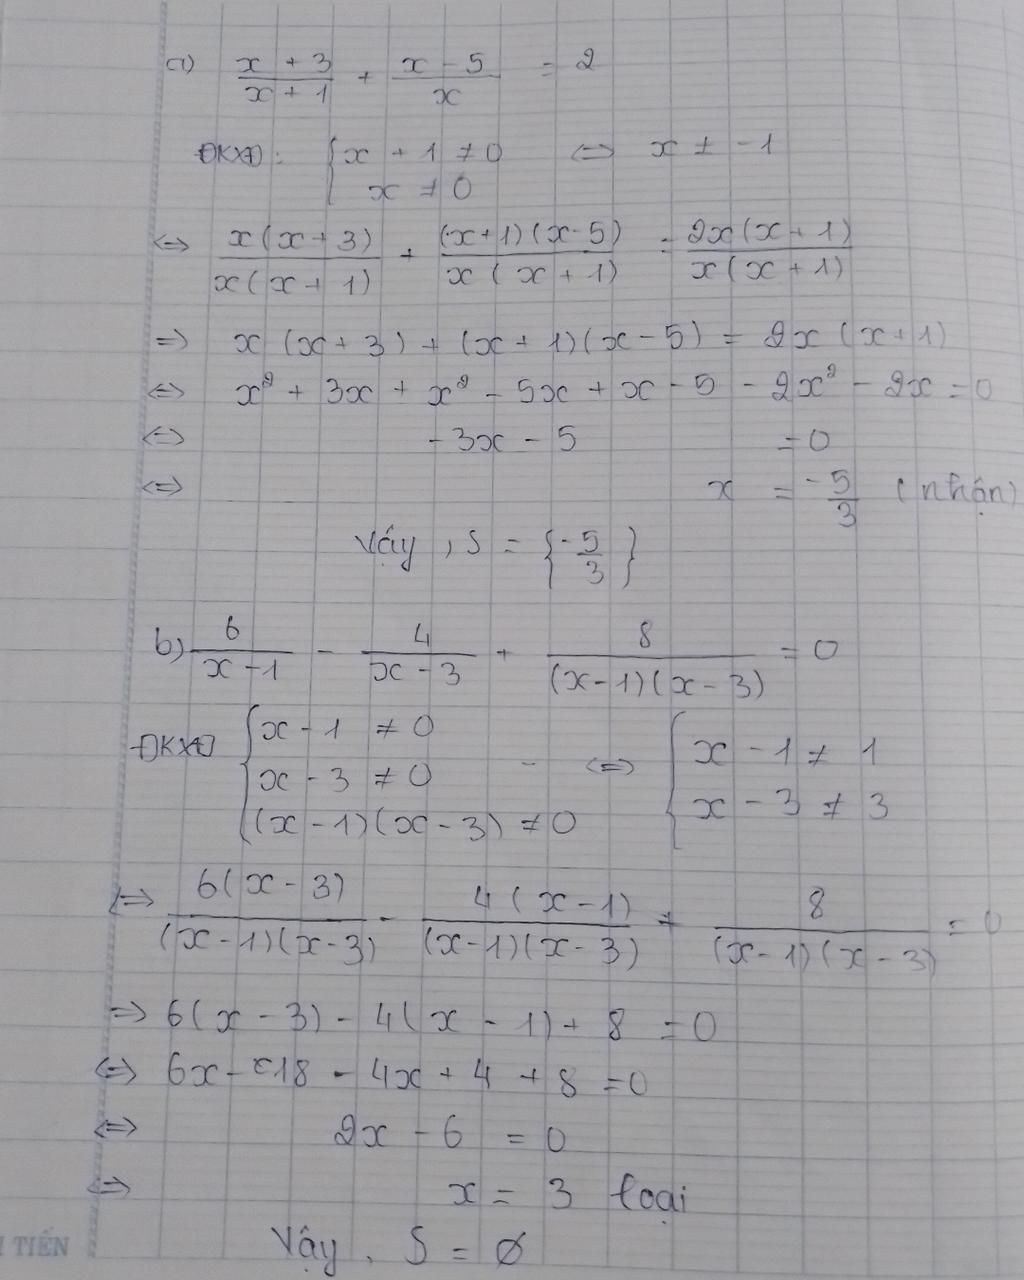 a) \frac{x + 3}{x + 1} + \frac{x - 5}{x} = 2
ĐKXĐ: { x + 1 ≠ 0 <=> x ≠ -1
x ≠ 0
<=> \frac{x(x + 3)}{x(x + 1)} + \frac{(x+1)(x-5)}{x(x + 1)} = \frac{2x(x + 1)}{x(x + 1)}
=> x(x + 3) + (x + 1)(x - 5) = 2x(x + 1)
<=> x² + 3x + x² - 5x + x - 5 - 2x² - 2x = 0
<=> -3x - 5 = 0
<=> x = -\frac{5}{3} (nhận)
Vậy, S = {-\frac{5}{3}}
b) \frac{6}{x - 1} - \frac{4}{x - 3} + \frac{8}{(x-1)(x-3)} = 0
ĐKXĐ { x - 1 ≠ 0 <=> { x - 1 ≠ 1
x - 3 ≠ 0 x - 3 ≠ 3
(x - 1)(x - 3) ≠ 0
<=> \frac{6(x - 3)}{(x - 1)(x - 3)} - \frac{4(x - 1)}{(x-1)(x - 3)} + \frac{8}{(x-1)(x-3)} = 0
=> 6(x - 3) - 4(x - 1) + 8 = 0
<=> 6x - 18 - 4x + 4 + 8 = 0
<=> 2x - 6 = 0
<=> x = 3 loại
Vậy, S = ∅
TIẾN